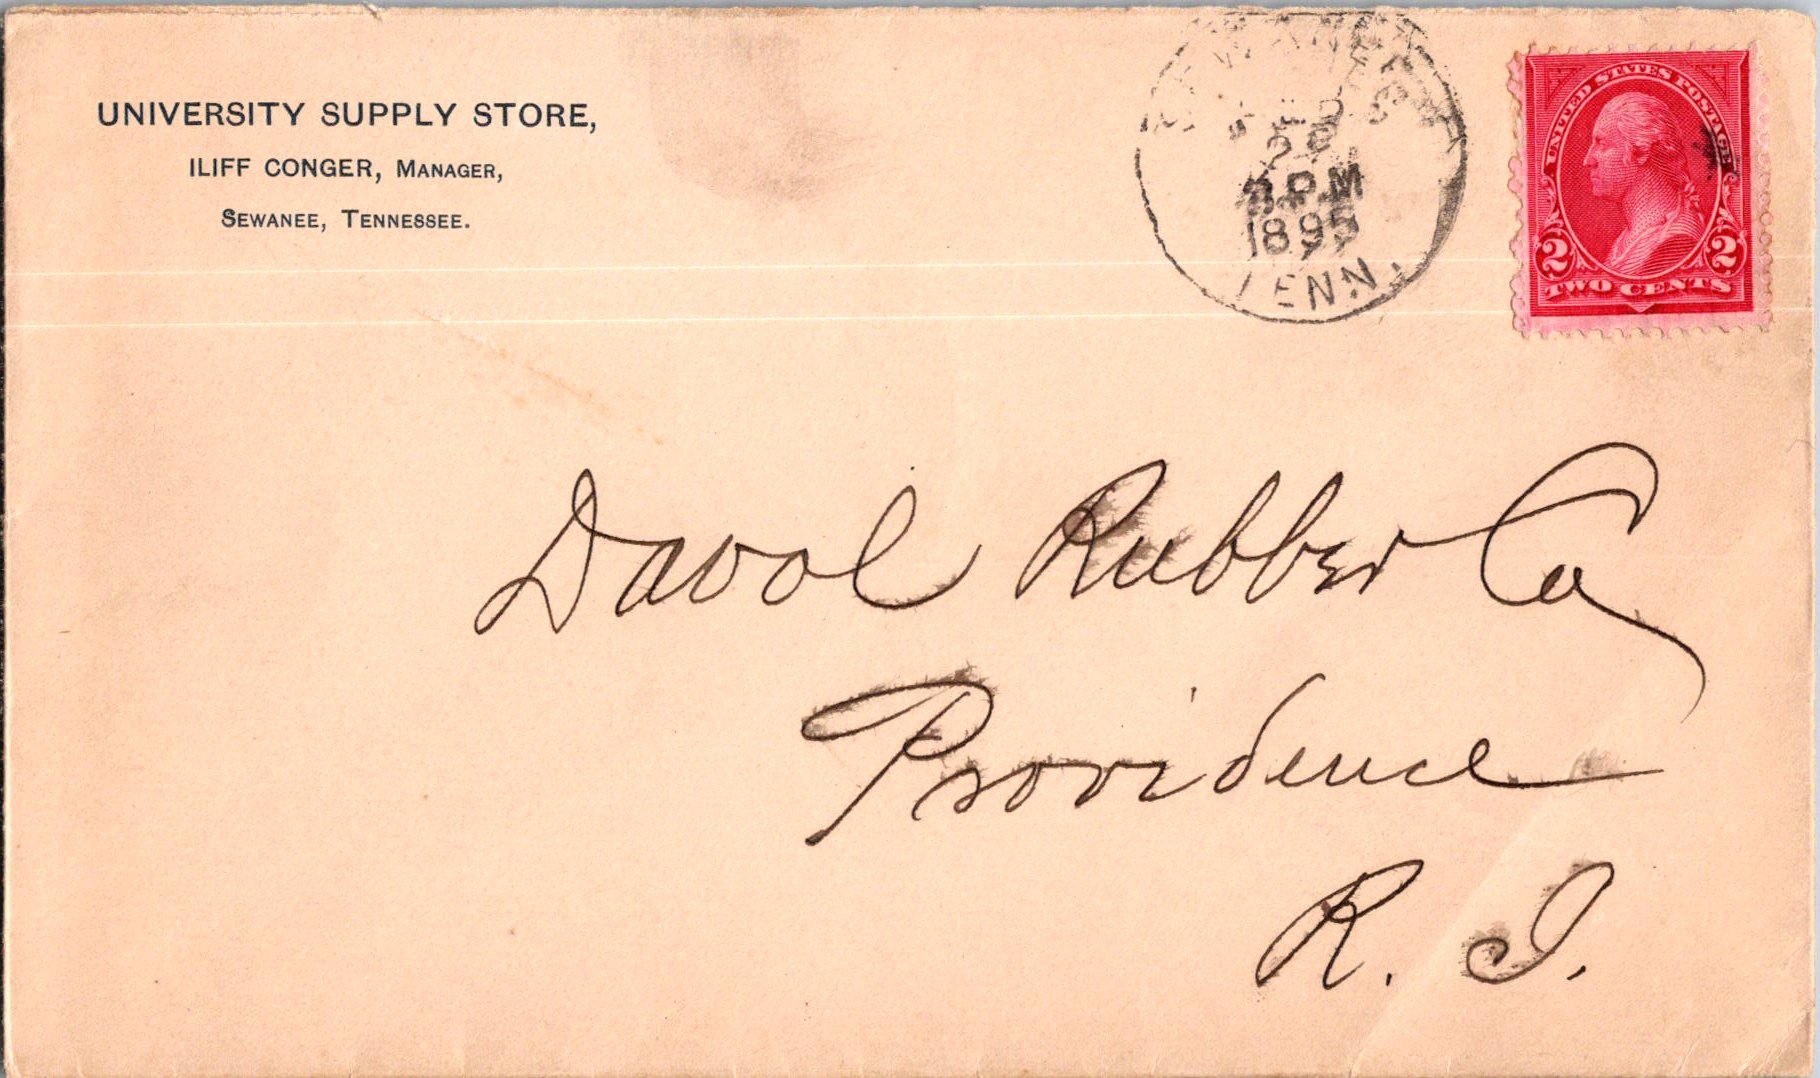 UNIVERSITY SUPPLY STORE,
ILIFF CONGER, MANAGER,
SEWANEE, TENNESSEE.
SEWANEE
PM
1895
TENN.
UNITED STATES POSTAGE
2 2
TWO CENTS
Davol Rubber Co
Providence
R. I.